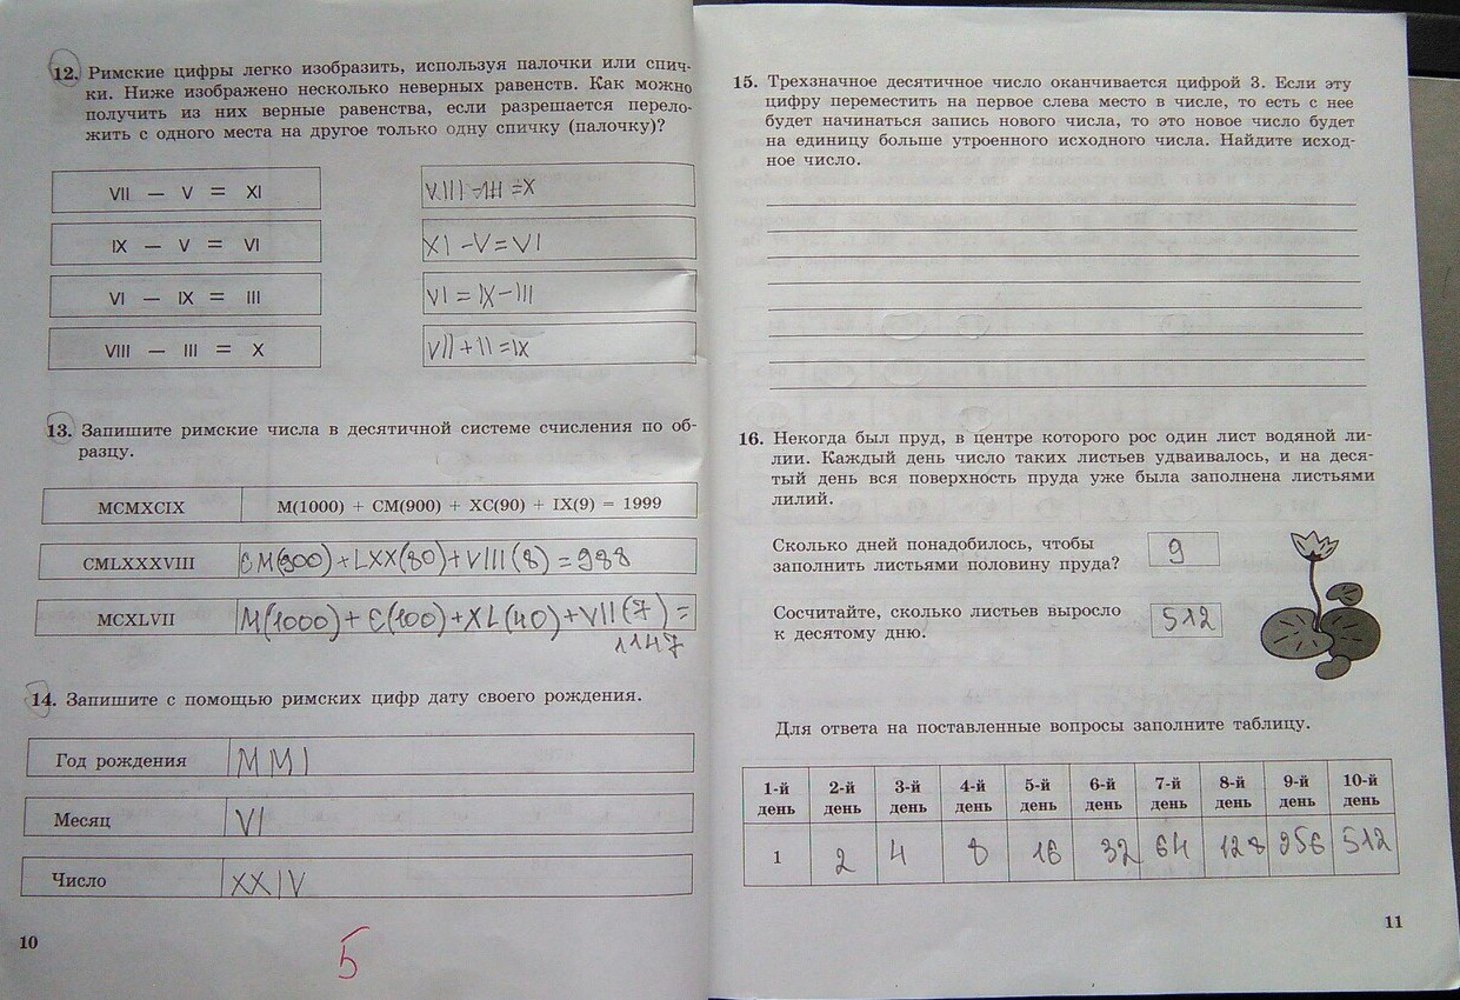 12. Римские цифры легко изобразить, используя палочки или спич-
ки. Ниже изображено несколько неверных равенств. Как можно
получить из них верные равенства, если разрешается перело-
жить с одного места на другое только одну спичку (палочку)?
VII — V = XI
IX — V = VI
XI - V = VI
VI — IX = III
VI = IX - III
VIII — III = X
VII + II = IX
13. Запишите римские числа в десятичной системе счисления по об-
разцу.
MCMXCIX M(1000) + CM(900) + XC(90) + IX(9) = 1999
CMLXXXVIII CM(900) + LXX(80) + VIII(8) = 988
MCXLVII M(1000) + C(100) + XL(40) + VII(7) =
1147
14. Запишите с помощью римских цифр дату своего рождения.
Год рождения MMI
Месяц VI
Число XXIV
10
5
15. Трехзначное десятичное число оканчивается цифрой 3. Если эту
цифру переместить на первое слева место в числе, то есть с нее
будет начинаться запись нового числа, то это новое число будет
на единицу больше утроенного исходного числа. Найдите исход-
ное число.
16. Некогда был пруд, в центре которого рос один лист водяной ли-
лии. Каждый день число таких листьев удваивалось, и на деся-
тый день вся поверхность пруда уже была заполнена листьями
лилий.
Сколько дней понадобилось, чтобы
заполнить листьями половину пруда?
9
Сосчитайте, сколько листьев выросло
к десятому дню.
512
Для ответа на поставленные вопросы заполните таблицу.
1-й день 2-й день 3-й день 4-й день 5-й день 6-й день 7-й день 8-й день 9-й день 10-й день
1 2 4 8 16 32 64 128 256 512
11